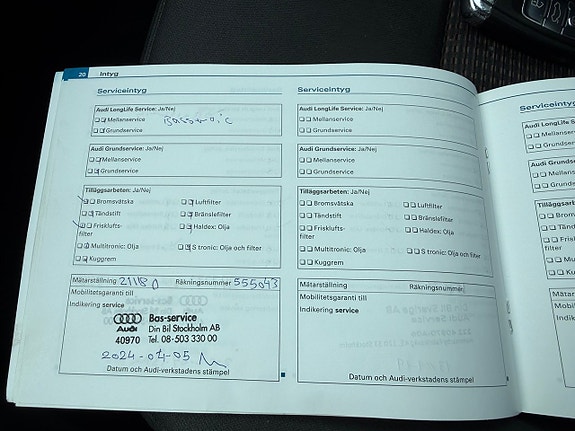 20 Intyg
Serviceintyg
Audi LongLife Service: Ja/Nej
Mellanservice
Grundservice
Audi Grundservice: Ja/Nej
Mellanservice
Grundservice
Tilläggsarbeten: Ja/Nej
Bromsvätska Luftfilter
Tändstift Bränslefilter
Friskluftsfilter Haldex: Olja
Multitronic: Olja S tronic: Olja och filter
Kuggrem
Mätarställning 21180 Räkningsnummer 555043
Mobilitetsgaranti till
Indikering service
Bas-service
Audi Din Bil Stockholm AB
40970 Tel. 08-503 330 00
2024-04-05
Datum och Audi-verkstadens stämpel
Serviceintyg
Audi LongLife Service: Ja/Nej
Mellanservice
Grundservice
Audi Grundservice: Ja/Nej
Mellanservice
Grundservice
Tilläggsarbeten: Ja/Nej
Bromsvätska Luftfilter
Tändstift Bränslefilter
Friskluftsfilter Haldex: Olja
Multitronic: Olja S tronic: Olja och filter
Kuggrem
Mätarställning Räkningsnummer
Mobilitetsgaranti till
Indikering service
Datum och Audi-verkstadens stämpel
Serviceintyg
Audi LongLife S
Mellanservice
Grundservice
Audi Grundser
Mellanserv
Grundserv
Tilläggsar
Broms
Tänd
Fris
filter
Mu
K
Mäta
Mobi
Indik